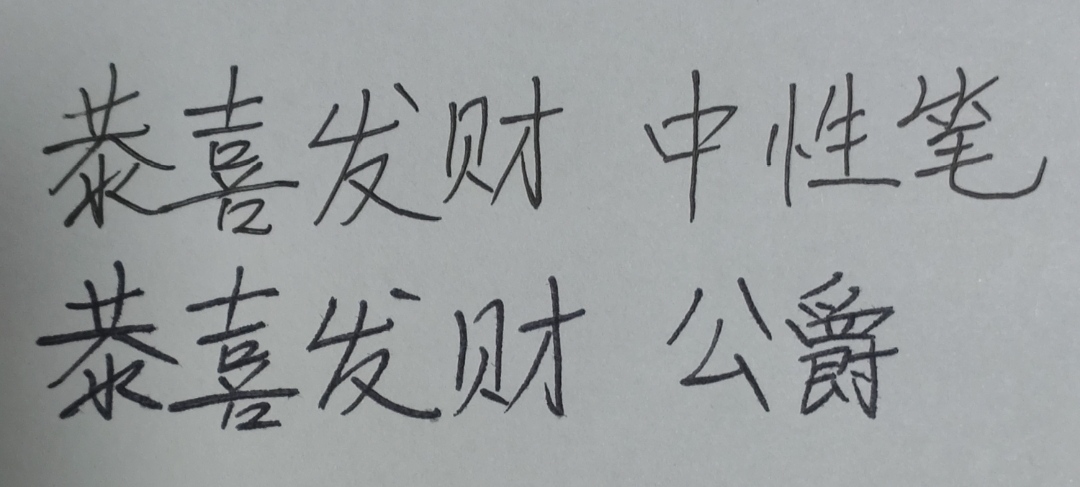 恭喜发财 中性笔
恭喜发财 公爵